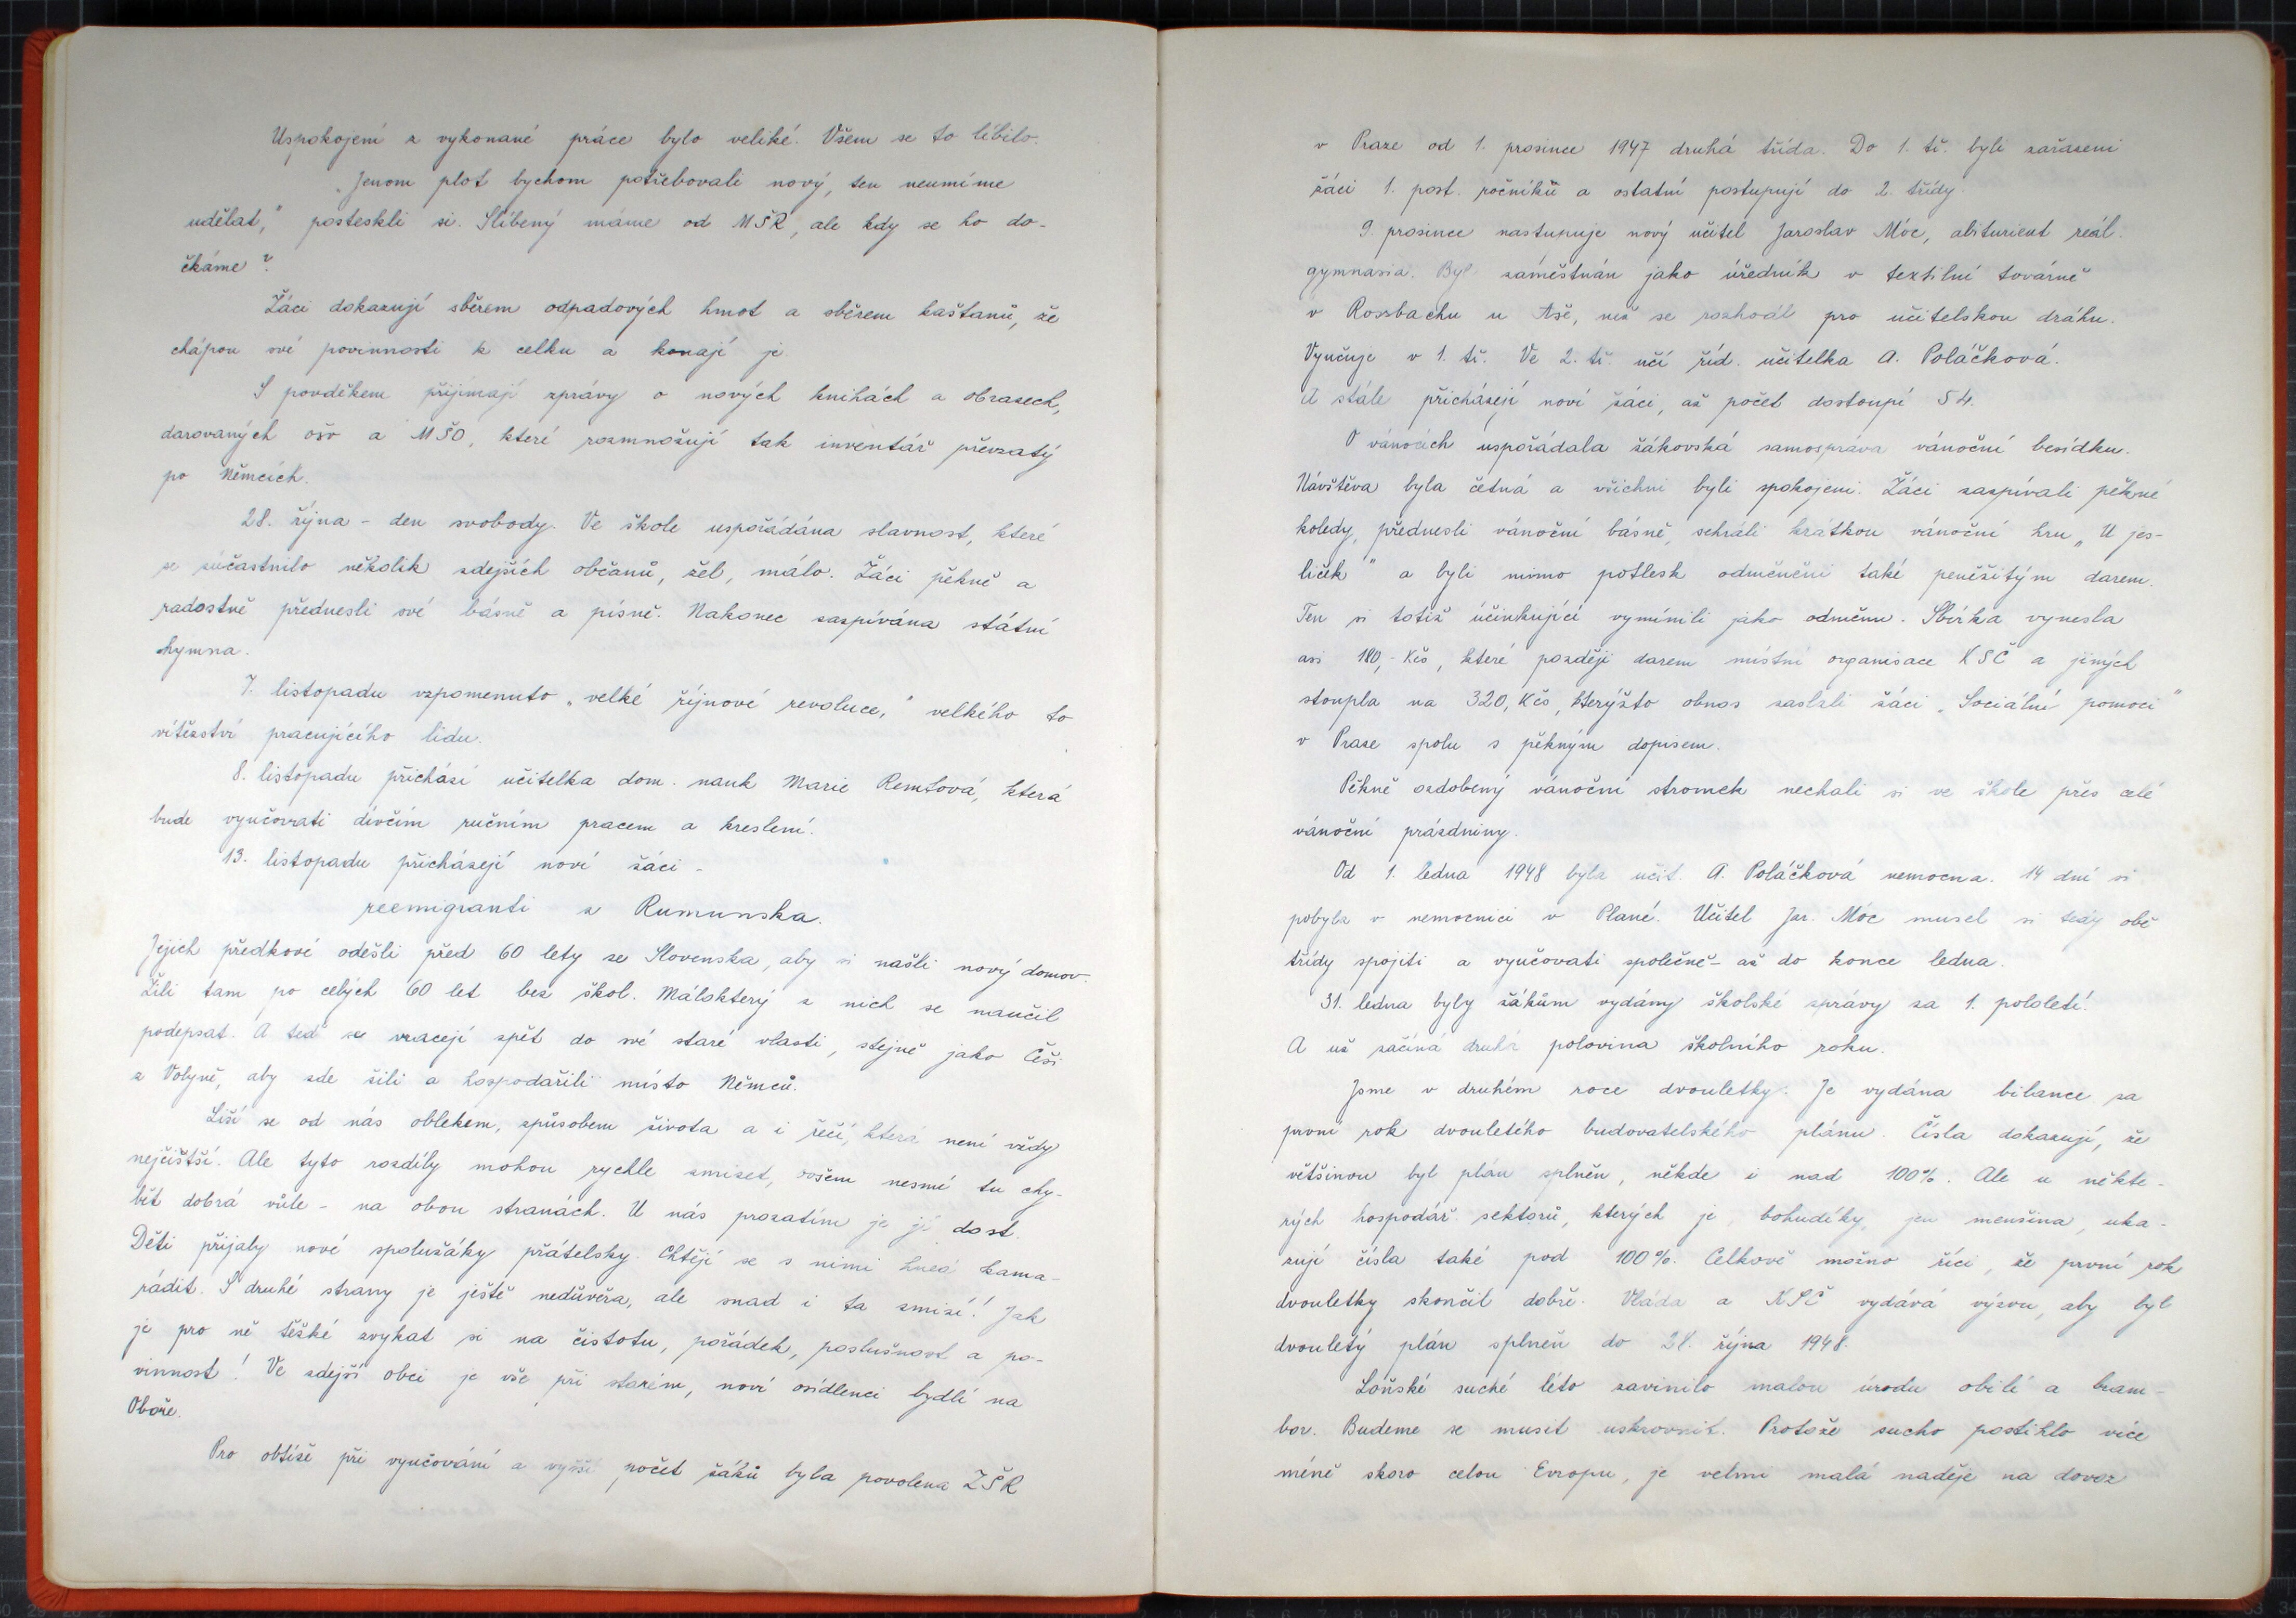 Uspokojení z vykonané práce bylo veliké. Všem se to líbilo.
„Jenom plot bychom potřebovali nový, ten neumíme
udělat,“ posteskli si. Slíbený máme od MŠR, ale kdy se ho do-
čkáme?
Žáci dokazují sběrem odpadových hmot a sběrem kaštanů, že
chápou své povinnosti k celku a konají je.
S povděkem přijímají zprávy o nových knihách a obrazech,
darovaných ošv a MŠO, které rozmnožují tak inventář převzatý
po Němcích.
28. října - den svobody. Ve škole uspořádána slavnost, které
se súčastnilo několik zdejších občanů, žel, málo. Žáci pěkně a
radostně přednesli své básně a písně. Nakonec zazpívána státní
hymna.
7. listopadu vzpomenuto „velké říjnové revoluce,“ velkého to
vítězství pracujícího lidu.
8. listopadu přichází učitelka dom. nauk Marie Remtová, která
bude vyučovati dívčím ručním pracem a kreslení.
13. listopadu přicházejí noví žáci -
reemigranti z Rumunska.
Jejich předkové odešli před 60 lety ze Slovenska, aby si našli nový domov.
Žili tam po celých 60 let bez škol. Málokterý z nich se naučil
podepsat. A teď se vracejí zpět do své staré vlasti, stejně jako Češi
z Volyně, aby zde žili a hospodařili místo Němců.
Liší se od nás oblekem, způsobem života a i řečí, která není vždy
nejčistší. Ale tyto rozdíly mohou rychle zmizet, ovšem nesmí tu chy-
bět dobrá vůle - na obou stranách. U nás prozatím je jí dost.
Děti přijaly nové spolužáky přátelsky. Chtějí se s nimi hned kama-
rádit. S druhé strany je ještě nedůvěra, ale snad i ta zmizí! Jak
je pro ně těžké zvykat si na čistotu, pořádek, poslušnost a po-
vinnost! Ve zdejší obci je vše při starém, noví osídlenci bydlí na
Oboře.
Pro obtíže při vyučování a vyšší počet žáků byla povolena ZŠR
v Praze od 1. prosince 1947 druhá třída. Do 1. tř. byli zařazeni
žáci 1. post. ročníků a ostatní postupují do 2. třídy.
9. prosince nastupuje nový učitel Jaroslav Móc, abiturient reál.
gymnasia. Byl zaměstnán jako úředník v textilní továrně
v Rossbachu u Aše, než se rozhodl pro učitelskou dráhu.
Vyučuje v 1. tř. Ve 2. tř. učí říd. učitelka A. Poláčková.
A stále přicházejí noví žáci, až počet dostoupí 54.
O vánocích uspořádala žákovská samospráva vánoční besídku.
Návštěva byla četná a všichni byli spokojeni. Žáci zazpívali pěkné
koledy, přednesli vánoční básně, sehráli krátkou vánoční hru „U jes-
liček“ a byli mimo potlesk odměněni také peněžitým darem.
Ten si totiž účinkující vymínili jako odměnu. Sbírka vynesla
asi 180,- Kčs, které později darem místní organisace KSČ a jiných
stoupla na 320,Kčs, kterýžto obnos zaslali žáci „Sociální pomoci“
v Praze spolu s pěkným dopisem.
Pěkně ozdobený vánoční stromek nechali si ve škole přes celé
vánoční prázdniny.
Od 1. ledna 1948 byla učit. A. Poláčková nemocna. 14 dní si
pobyla v nemocnici v Plané. Učitel Jar. Móc musel si tedy obě
třídy spojiti a vyučovati společně - až do konce ledna.
31. ledna byly žákům vydány školské zprávy za 1. pololetí.
A už začíná druhá polovina školního roku.
Jsme v druhém roce dvouletky. Je vydána bilance za
první rok dvouletého budovatelského plánu. Čísla dokazují, že
většinou byl plán splněn, někde i nad 100%. Ale u někte-
rých hospodář. sektorů, kterých je, bohudíky, jen menšina, uka-
zují čísla také pod 100%. Celkově možno říci, že první rok
dvouletky skončil dobře. Vláda a KSČ vydává výzvu, aby byl
dvouletý plán splněn do 28. října 1948.
Loňské suché léto zavinilo malou úrodu obilí a bram-
bor. Budeme se muset uskrovnit. Protože sucho postihlo více
méně skoro celou Evropu, je velmi malá naděje na dovoz